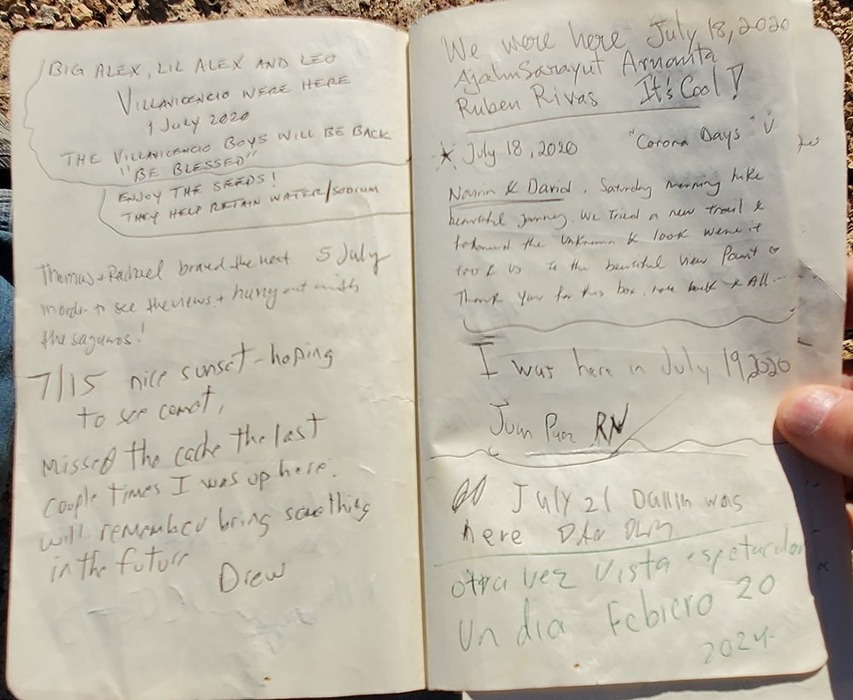 BIG ALEX, LIL ALEX AND LEO
VILLAVICENCIO WERE HERE
1 JULY 2020
THE VILLAVICENCIO BOYS WILL BE BACK
"BE BLESSED"
ENJOY THE SEEDS!
THEY HELP RETAIN WATER/SODIUM
Thomas + Rachael braved the heat 5 July
in order to see the views + hung out with
the saguaros!
7/15 nice sunset - hoping
to see comet,
Missed the cache the last
couple times I was up here.
will remember bring something
in the future
Drew
We were here July 18, 2020
Ajahn Sarayut Arnanta
Ruben Rivas It's Cool!
July 18, 2020 "Corona Days"
& David, Saturday morning hike
beautiful journey. We tried a new trail &
the unknown & look were it
took us to the beautiful view Point
Thank you for this box. & All...
I was here in July 19, 2020
Juan RN
July 21 Dallin was
here
otra vez Vista espetacular
Un dia Febrero 20
2024